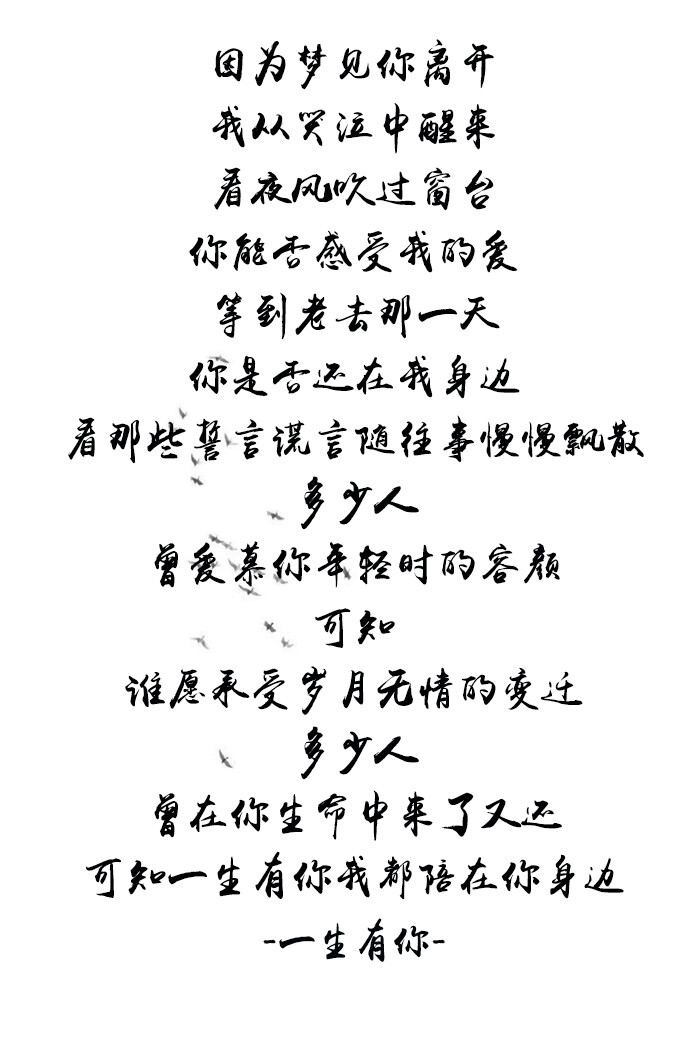 因为梦见你离开
我从哭泣中醒来
看夜风吹过窗台
你能否感受我的爱
等到老去那一天
你是否还在我身边
看那些誓言谎言随往事慢慢飘散
多少人
曾爱慕你年轻时的容颜
可知
谁愿承受岁月无情的变迁
多少人
曾在你生命中来了又还
可知一生有你我都陪在你身边
-一生有你-